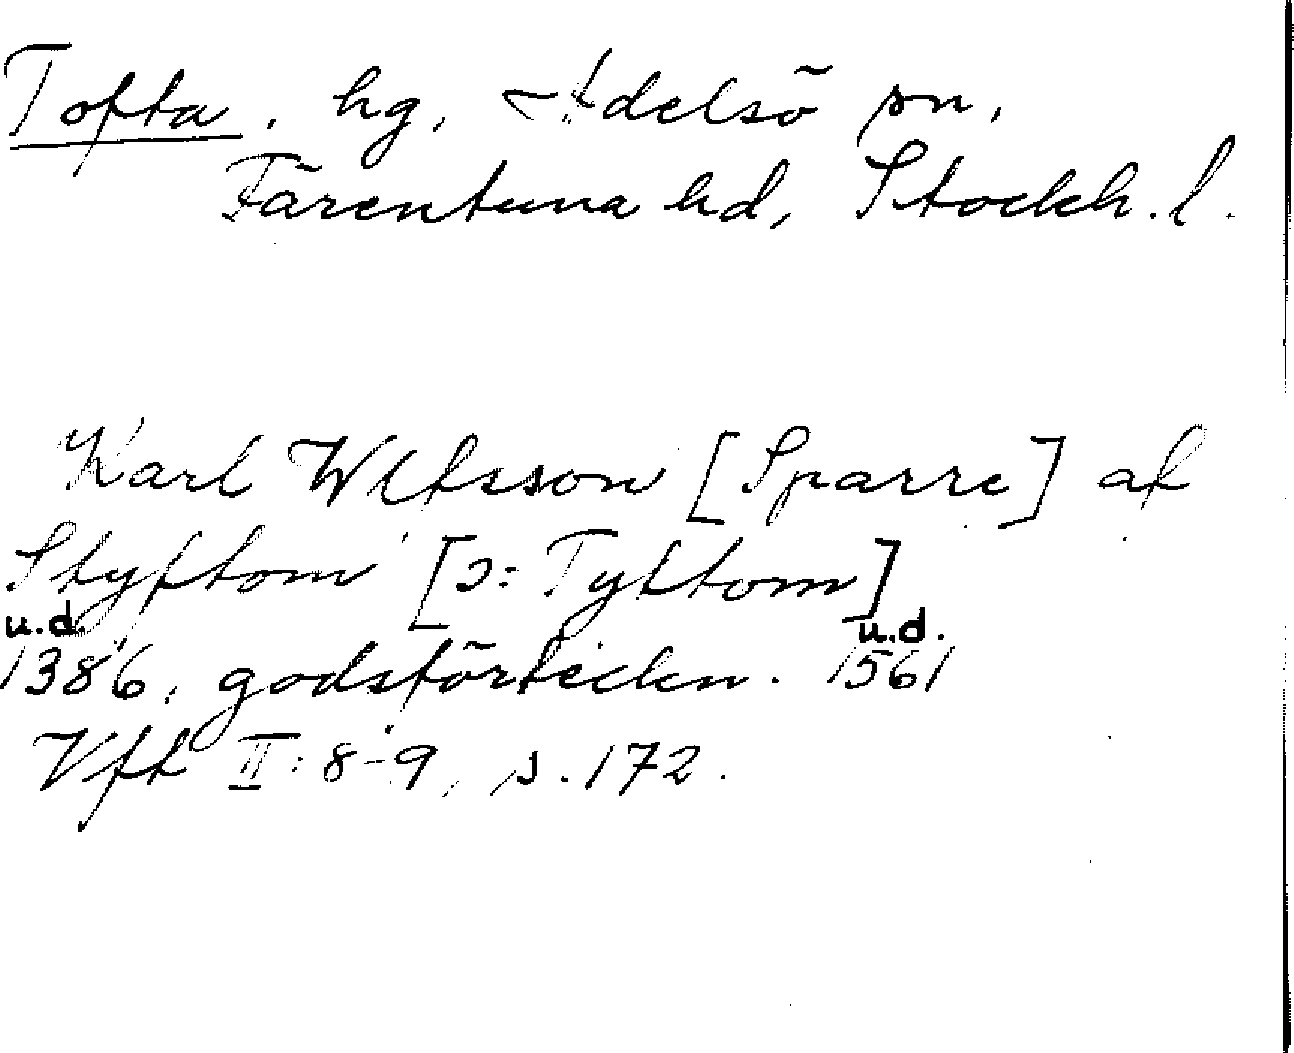 Tofta. hg, Adelsö sn,
Färentuna hd, Stockh. l.
Karl Ulfsson [Sparre] af
Styftom [ɔ: Tyltom]
u.d. u.d.
1386, godsförteckn. 1561
Vft II: 8-9, s. 172.